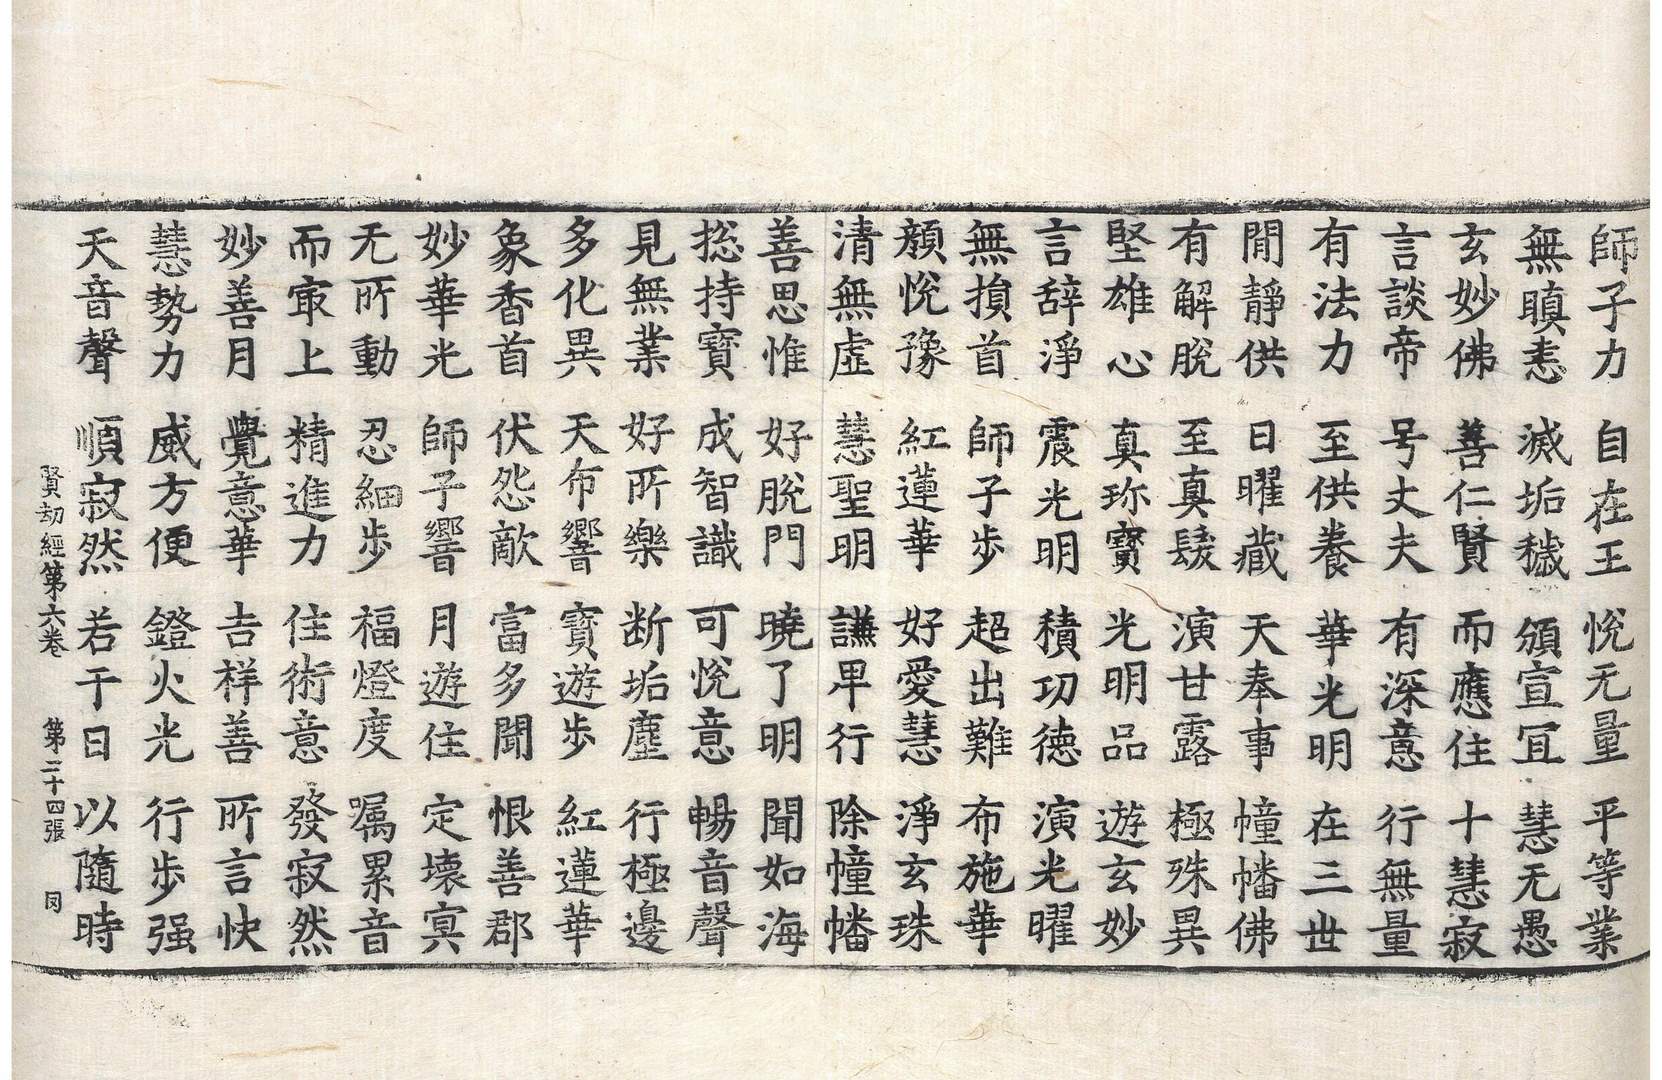 師子力 自在王 悅无量 平等業
無瞋恚 滅垢穢 頒宣冝 慧无愚
玄妙佛 善仁賢 而應住 十慧寂
言談帝 号丈夫 有深意 行無量
有法力 至供養 華光明 在三世
閒靜供 日曜藏 天奉事 幢幡佛
有解脫 至真髮 演甘露 極殊異
堅雄心 真珎寶 光明品 遊玄妙
言辞淨 震光明 積功德 演光曜
無損首 師子步 超出難 布施華
顏悅豫 紅蓮華 好愛慧 淨玄珠
清無虛 慧聖明 謙卑行 除幢幡
善思惟 好脫門 曉了明 聞如海
捴持寶 成智識 可悅意 暢音聲
見無業 好所樂 断垢塵 行極邊
多化異 天布響 寶遊步 紅蓮華
象香首 伏怨敵 富多聞 恨善郡
妙華光 師子響 月遊住 定壞冥
无所動 忍細步 福燈度 嘱累音
而寂上 精進力 住術意 發寂然
妙善月 覺意華 吉祥善 所言快
慧勢力 威方便 鐙火光 行步强
天音聲 順寂然 若干日 以隨時
賢劫經第六卷 第二十四張 同